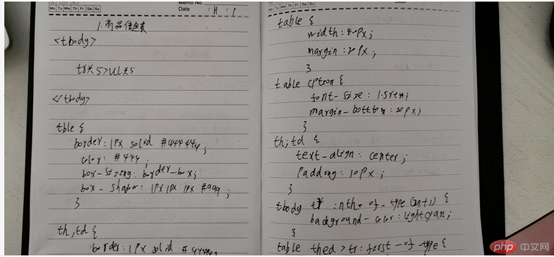 Date
1.商品信息表
<tbody>
tr*5>
</tbody>
tble {
border: 1px solid #444444;
color: #444;
box-sizing: border-box;
box-shapor: 1px 1px 1px #aaa;
}
th,td {
border: 1px solid
table {
width: 40px;
margin: 20px;
}
table cption {
font-size: 1.5rem;
margin-bottom: 20px;
}
th,td {
text-align: center;
padding: 10px;
}
tbody tr :nth-of-type (2n+1) {
background-color: lightcyan;
}
table thed > tr: first-of-type {
php 中文网